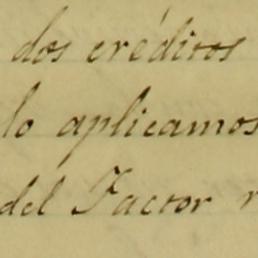 dos créditos
lo aplicamos
del Factor